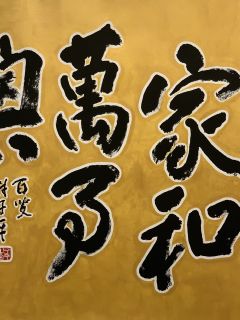 家和
萬事
興
百叟